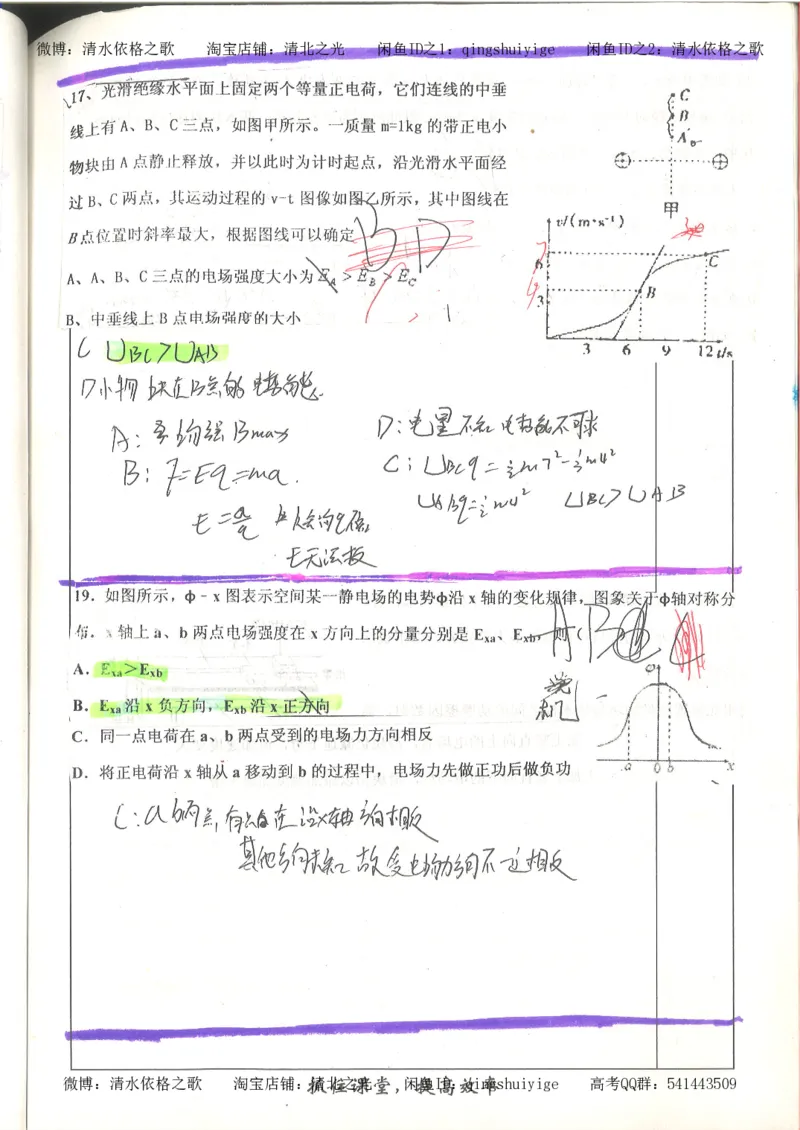 微博：清水依格之歌 淘宝店铺：清北之光 闲鱼ID之1：qingshuiyige 闲鱼ID之2：清水依格之歌
17、光滑绝缘水平面上固定两个等量正电荷，它们连线的中垂
线上有 A、B、C 三点，如图甲所示。一质量 m=1kg 的带正电小
物块由 A 点静止释放，并以此时为计时起点，沿光滑水平面经
过 B、C 两点，其运动过程的 v-t 图像如图乙所示，其中图线在
B点位置时斜率最大，根据图线可以确定
BD
A、A、B、C 三点的电场强度大小为 EA > EB > EC
B、中垂线上 B 点电场强度的大小
C
B
A
甲
v/(m·s⁻¹)
7
6
C
B
3
3 6 9 12 t/s
C UBC>UAB
D 小物块在B点的电势能.
A: Bmax
B: F=Eq=ma.
E=a/q
E无法
D: 电量不知 电势能不可求
C: UBCq=½m7²-½m4²
UABq=½m4² UBC>UAB
19．如图所示，φ–x 图表示空间某一静电场的电势φ沿 x 轴的变化规律，图象关于φ轴对称分
布．x 轴上 a、b 两点电场强度在 x 方向上的分量分别是 Exa、Exb，则（
A．Exa＞Exb
B．Exa沿 x 负方向，Exb沿 x 正方向
C．同一点电荷在 a、b 两点受到的电场力方向相反
D．将正电荷沿 x 轴从 a 移动到 b 的过程中，电场力先做正功后做负功
φ
a 0 b x
C: a b两点, 在沿x轴方向相反
其他方向未知 故受电场力方向不一定相反
微博：清水依格之歌 淘宝店铺：清北之光 闲鱼ID：qingshuiyige 高考QQ群：541443509
抓住课堂，提高效率